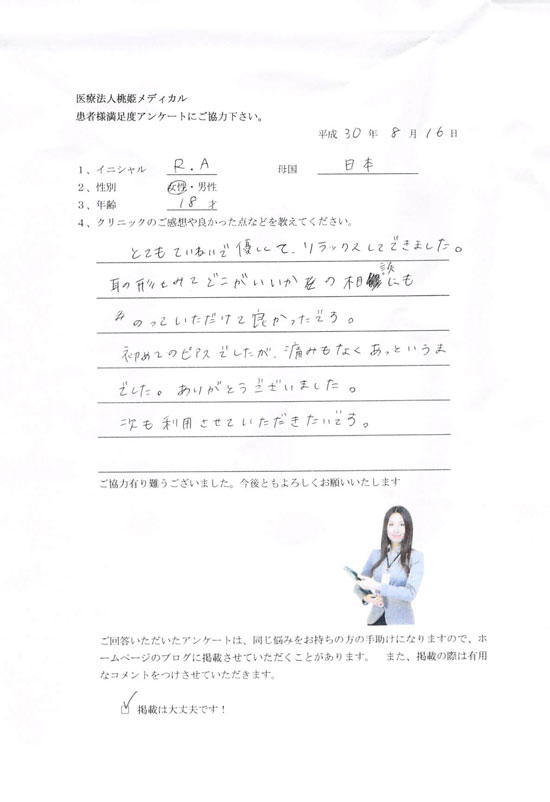 医療法人桃姫メディカル
患者様満足度アンケートにご協力下さい。
平成 30 年 8 月 16 日
1、イニシャル R.A 母国 日本
2、性別 女性・男性
3、年齢 18 才
4、クリニックのご感想や良かった点などを教えてください。
とてもていねいで優しくて、リラックスしてできました。
耳の形をみてどこがいいか の相談にも
のっていただけて良かったです。
初めてのピアスでしたが、痛みもなくあっというま
でした。ありがとうございました。
次も利用させていただきたいです。
ご協力有り難うございました。今後ともよろしくお願いいたします
ご回答いただいたアンケートは、同じ悩みをお持ちの方の手助けになりますので、ホ
ームページのブログに掲載させていただくことがあります。 また、掲載の際は有用
なコメントをつけさせていただきます。
☑ 掲載は大丈夫です！